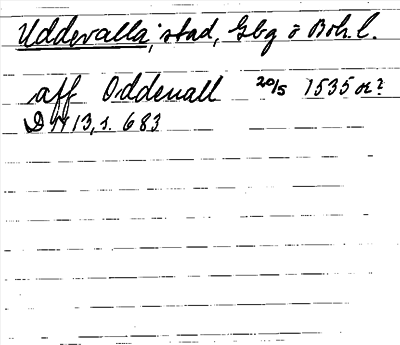 Uddevalla, stad, Gbg o Boh. l.
aff Oddeuall 20/5 1535 or?
DN 13, s. 683